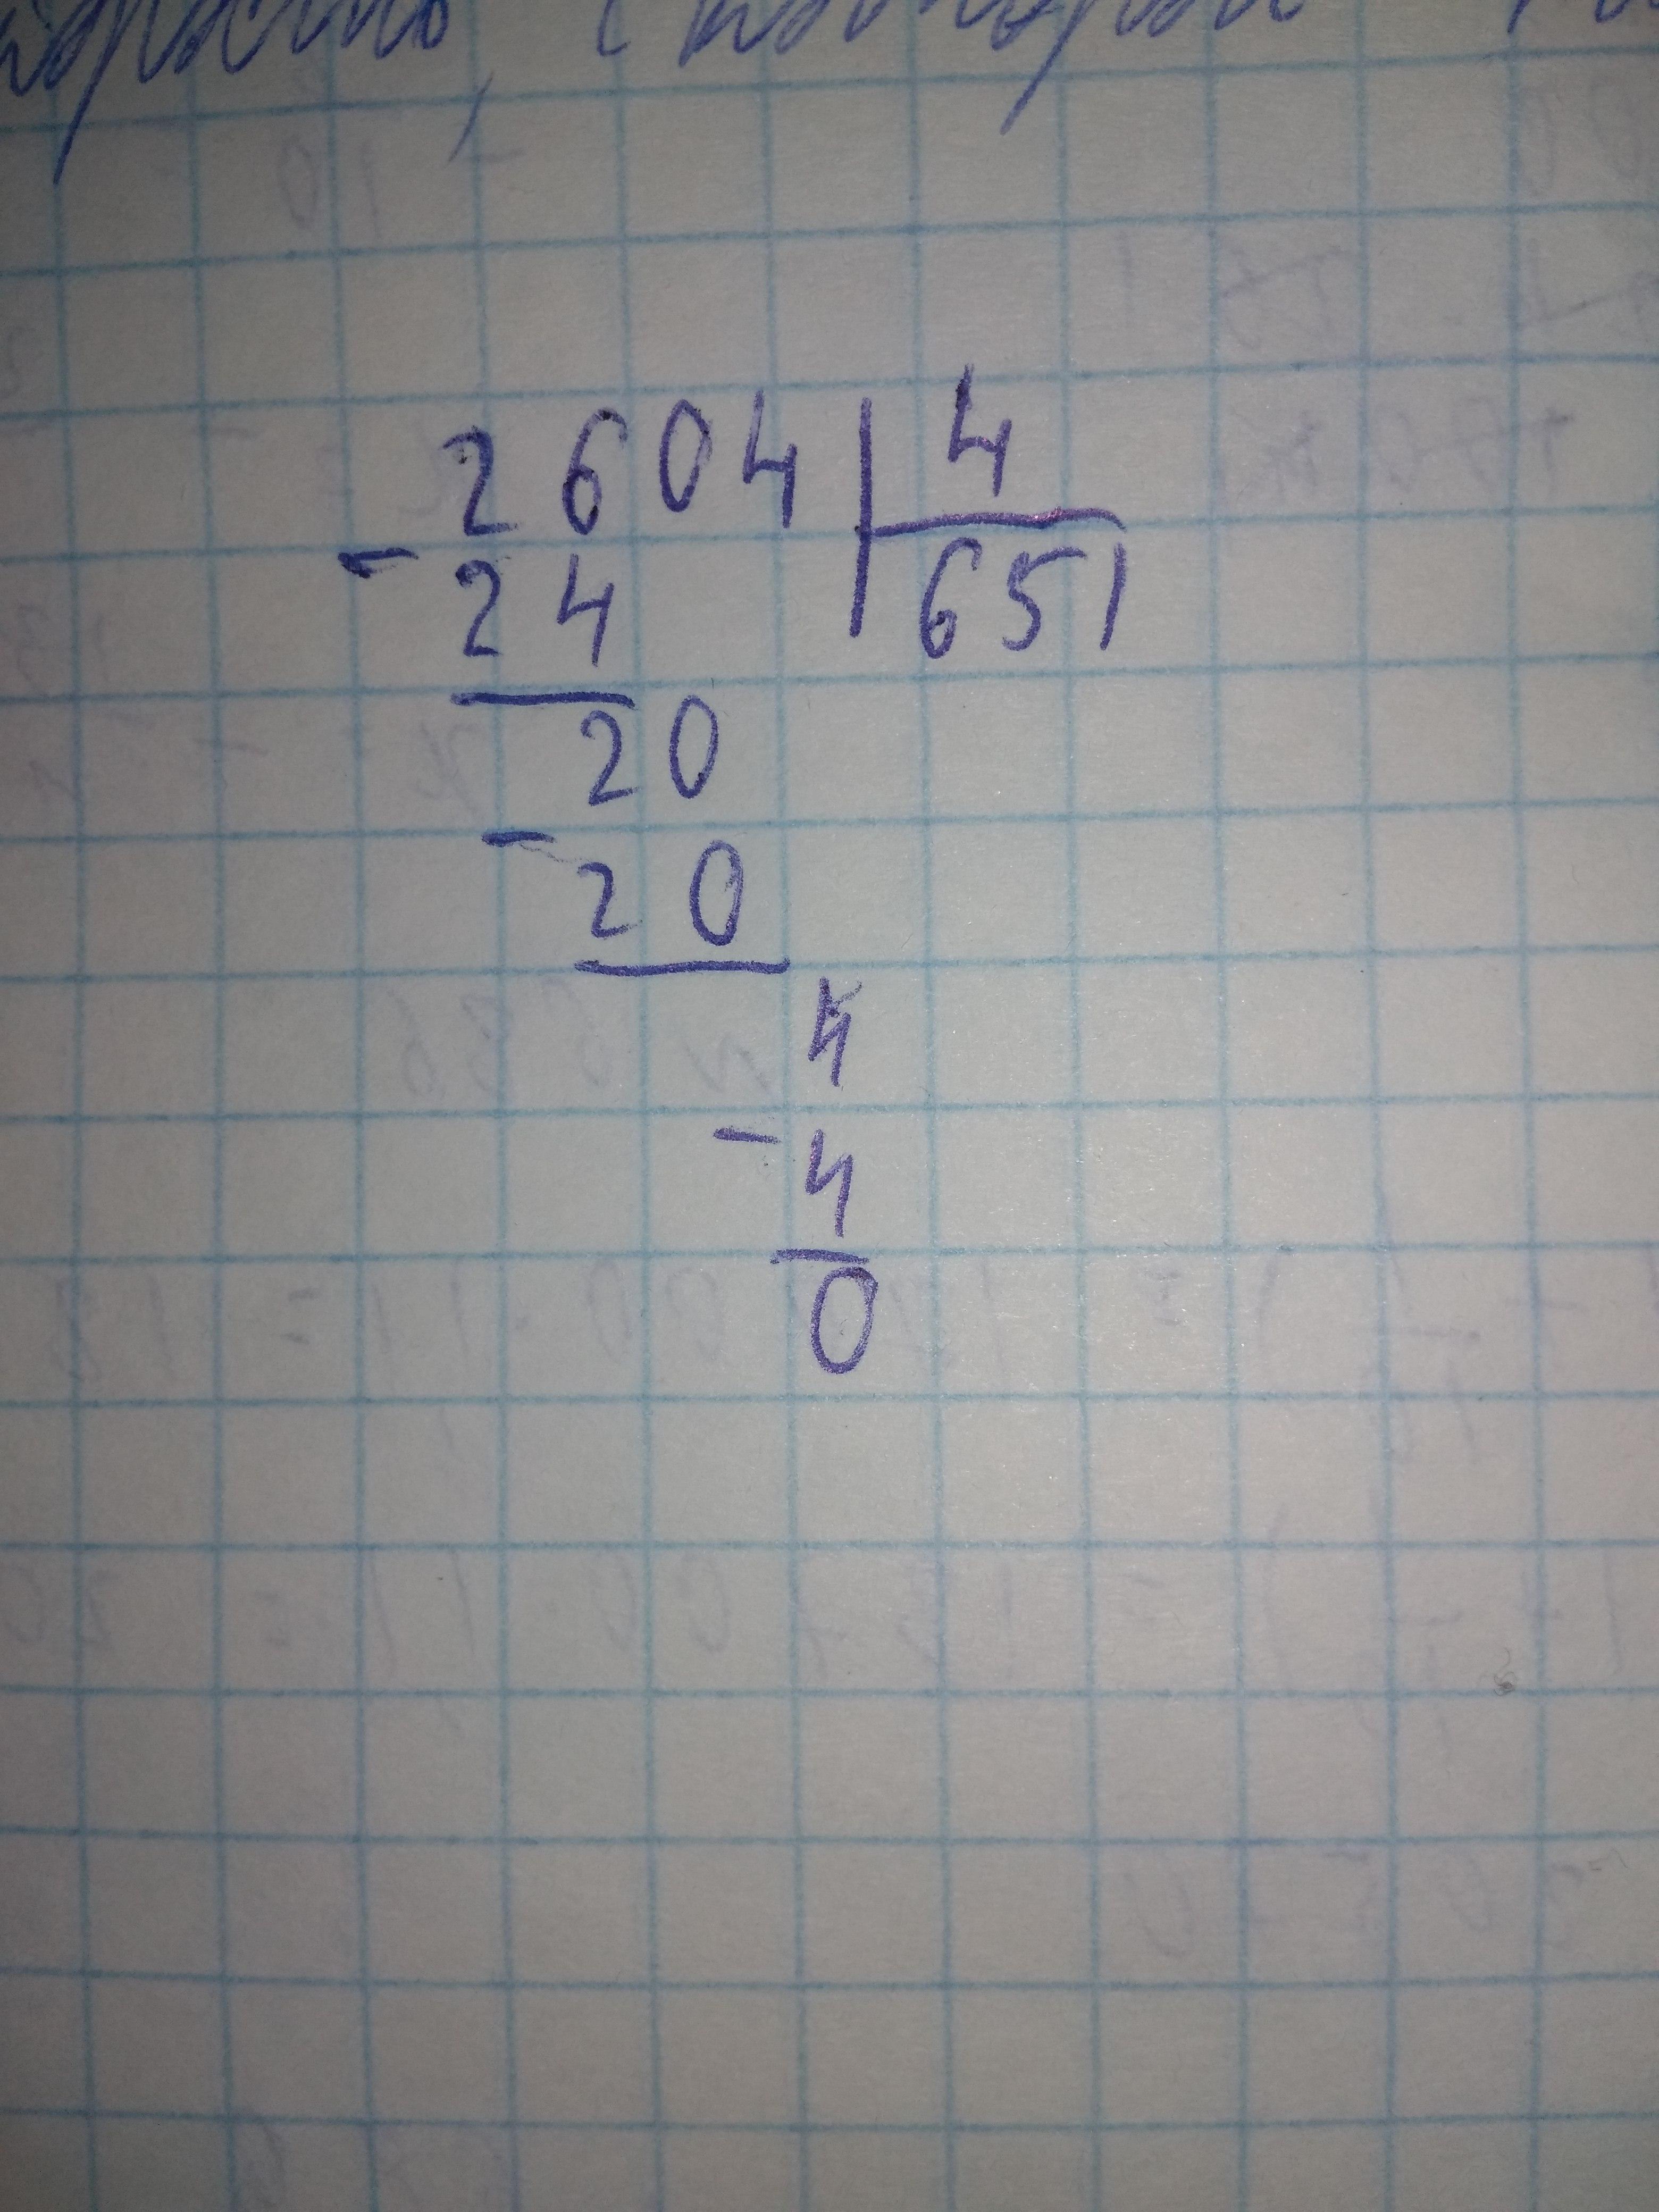 2604 | 4
- 24 651
20
- 20
4
- 4
0